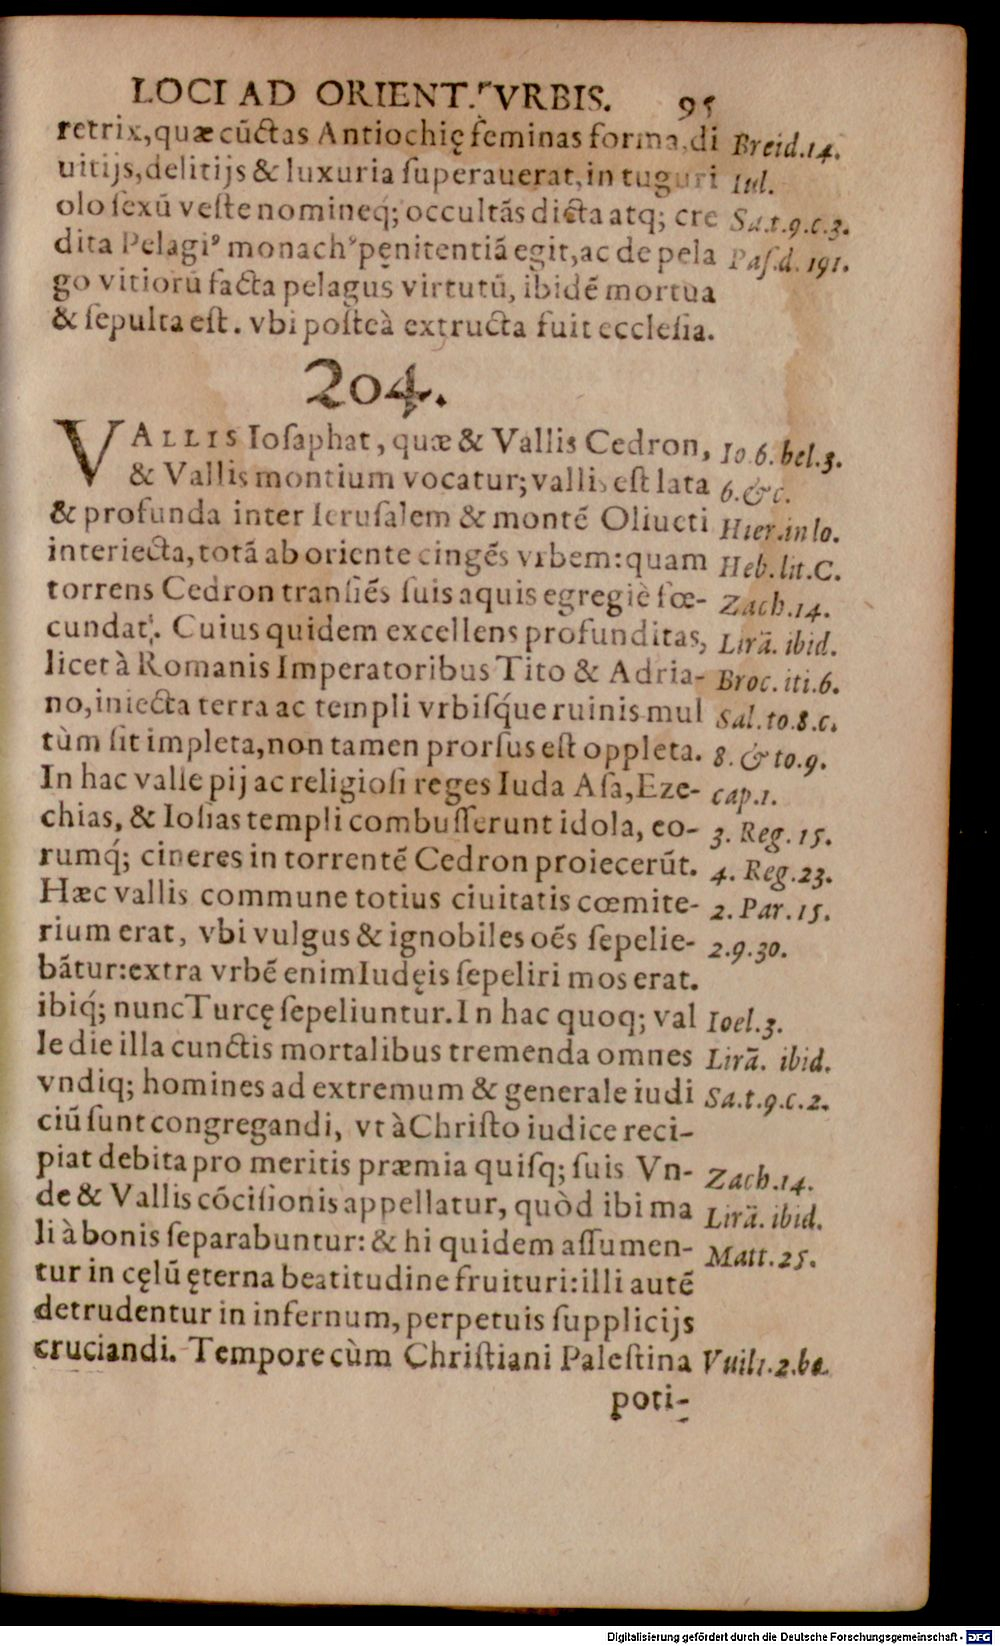 LOCI AD ORIENT. VRBIS. 95
retrix, quæ cũctas Antiochię feminas forma, di
uitijs, delitijs & luxuria ſuperauerat, in tuguri
olo ſexũ veſte nomineq́; occultãs dicta atq; cre
dita Pelagiꝰ monachꝰ pęnitentiã egit, ac de pela
go vitiorũ facta pelagus virtutũ, ibidẽ mortua
& ſepulta eſt. vbi poſteà extructa fuit eccleſia.
Breid.14.
Iul.
Sa.t.9.c.3.
Paſ.d. 191.
204.
VALLIS Ioſaphat, quæ & Vallis Cedron,
& Vallis montium vocatur; vallis eſt lata
& profunda inter Ieruſalem & montẽ Oliueti
interiecta, totã ab oriente cingẽs vrbem: quam
torrens Cedron tranſiẽs ſuis aquis egregiè fœ-
cundat. Cuius quidem excellens profunditas,
licet à Romanis Imperatoribus Tito & Adria-
no, iniecta terra ac templi vrbiſq́ue ruinis mul
tùm ſit impleta, non tamen prorſus eſt oppleta.
In hac valle pij ac religioſi reges Iuda Aſa, Eze-
chias, & Ioſias templi combuſſerunt idola, eo-
rumq́; cineres in torrentẽ Cedron proiecerũt.
Hæc vallis commune totius ciuitatis cœmite-
rium erat, vbi vulgus & ignobiles oẽs ſepelie-
bãtur: extra vrbẽ enim Iudęis ſepeliri mos erat.
ibiq́; nunc Turcę ſepeliuntur. In hac quoq; val
le die illa cunctis mortalibus tremenda omnes
vndiq; homines ad extremum & generale iudi
ciũ ſunt congregandi, vt à Chriſto iudice reci-
piat debita pro meritis præmia quiſq; ſuis Vn-
de & Vallis cõciſionis appellatur, quòd ibi ma
li à bonis ſeparabuntur: & hi quidem aſſumen-
tur in cęlũ ęterna beatitudine fruituri: illi autẽ
detrudentur in infernum, perpetuis ſupplicijs
cruciandi. Tempore cùm Chriſtiani Paleſtina
poti-
Io.6.bel.3.
6.&c.
Hier.in lo.
Heb.lit.C.
Zach.14.
Lirã. ibid.
Broc.iti.6.
Sal.to.8.c.
8. & to.9.
cap.1.
3. Reg. 15.
4. Reg.23.
2. Par.15.
2.9.30.
Ioel.3.
Lirã. ibid.
Sa.t.9.c.2.
Zach.14.
Lirã. ibid.
Matt.25.
Vuilt.2.be.
Digitalisierung gefördert durch die Deutsche Forschungsgemeinschaft - DFG